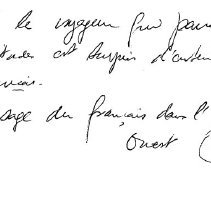 le voyageur qui pour
tudes est surpris d'enten
ançais.
sage du français dans l'
Ouest (